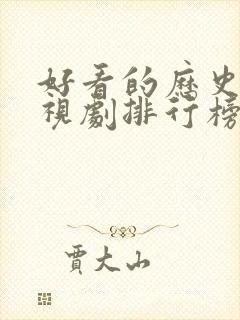 好看的歷史
視劇排行榜
賈大山